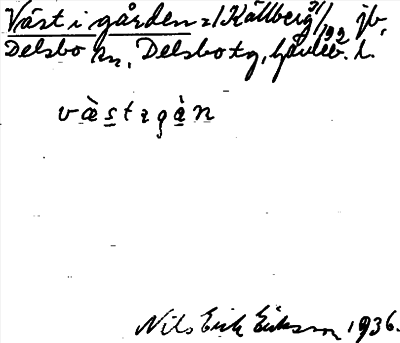 Väst i gården = / Källberg 31/192 jb,
Delsbo sn, Delsbo tg, Gävleb. l.
væ̀stıgàn
Nils Erik Eriksson 1936.